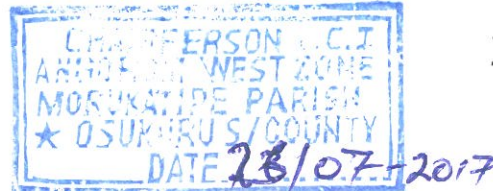 CHAIRPERSON L.C.I
WEST ZONE
MORUKATIPE PARISH
★ OSUKURU S/COUNTY
DATE 23/07-2017